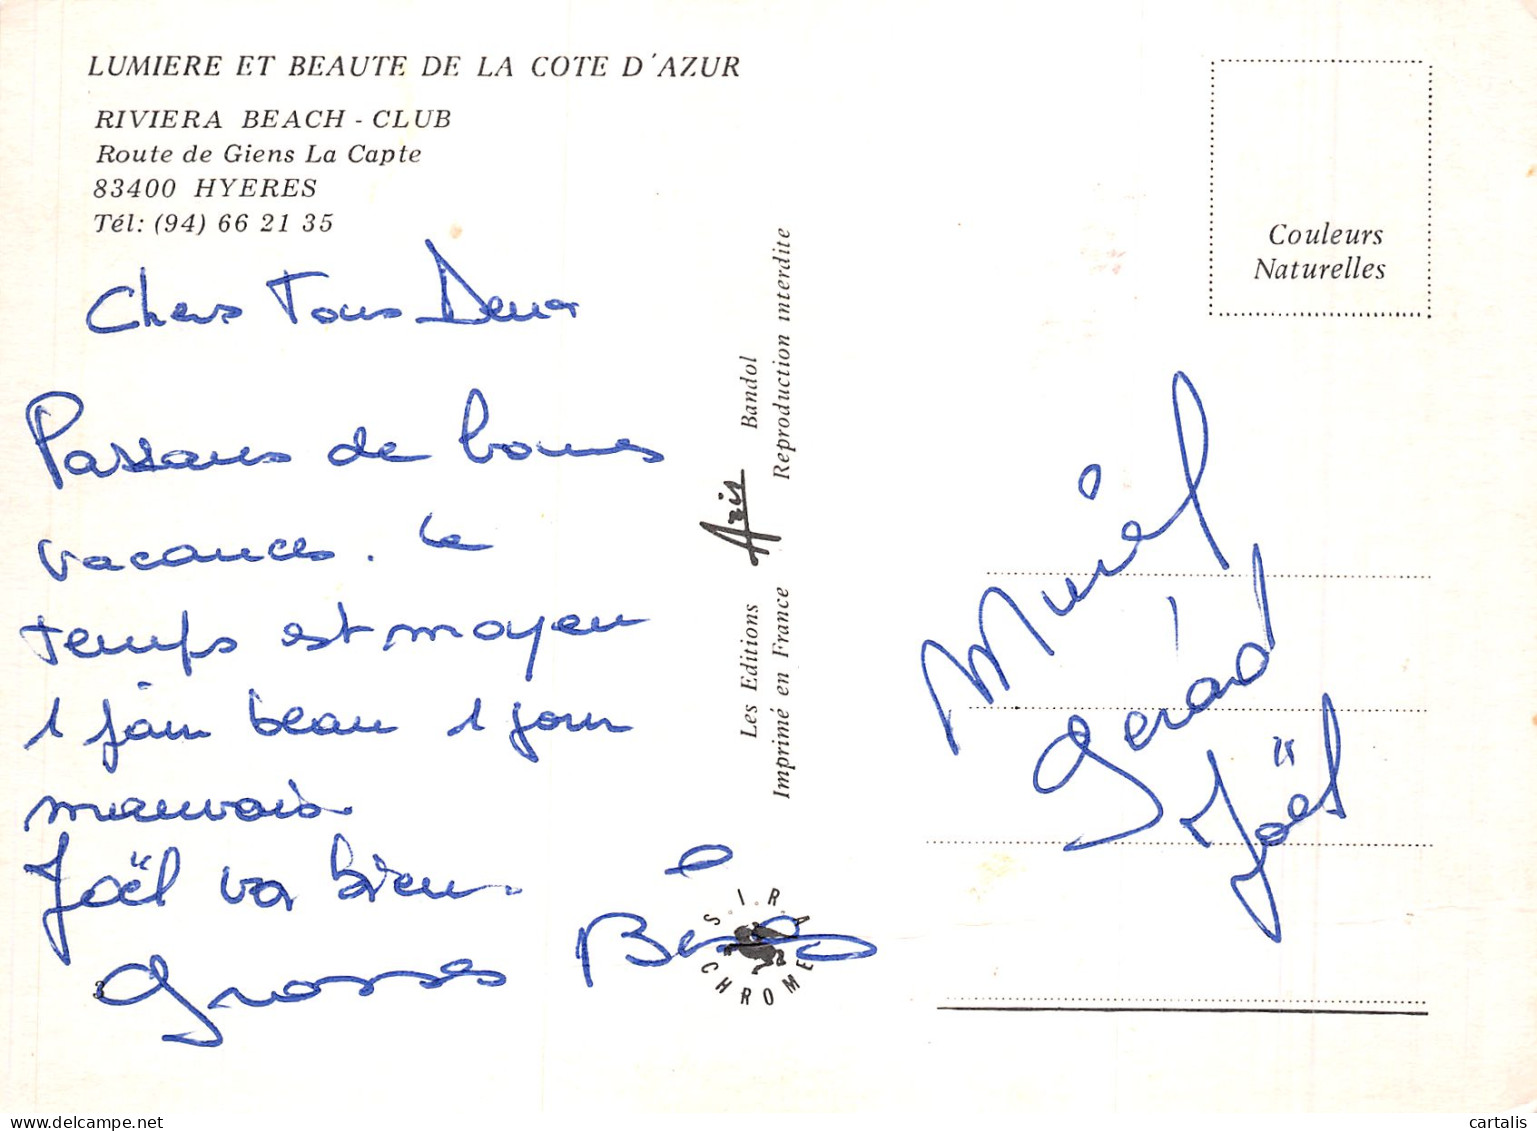 LUMIERE ET BEAUTE DE LA COTE D'AZUR
RIVIERA BEACH - CLUB
Route de Giens La Capte
83400 HYERES
Tél: (94) 66 21 35
Chers Tous Deux
Passons de bonnes
vacances. Le
temps est moyen
1 jour beau 1 jour
mauvais
Joël va bien.
Grosses Bises
Les Editions Aris Bandol
Imprimé en France Reproduction interdite
S.I.R.A
CHROME
Couleurs
Naturelles
Muriel
Gérard
Joël
cartalis